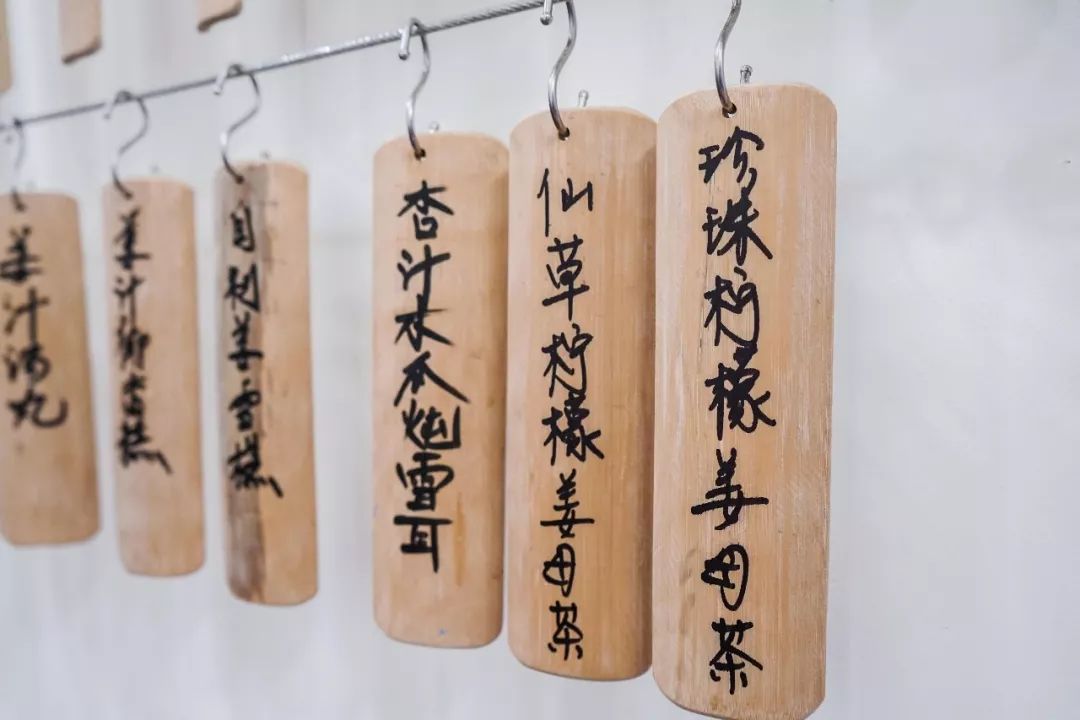 珍珠柠檬姜母茶
仙草柠檬姜母茶
杏汁水瓜炖雪耳
自制姜雪糕
姜汁糕
姜汁汤丸